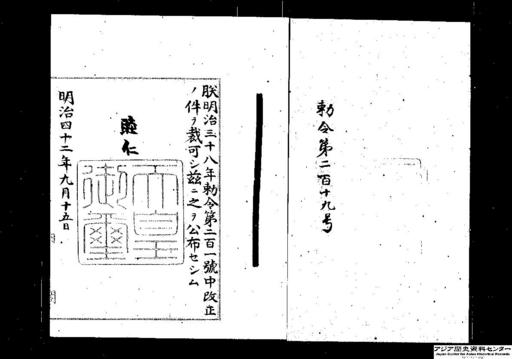 勅令第二百十九号
朕明治三十八年勅令第二百一號中改正
ノ件ヲ裁可シ茲ニ之ヲ公布セシム
睦仁
天皇
御璽
明治四十二年九月十五日
アジア歴史資料センター
Japan Center for Asian Historical Records